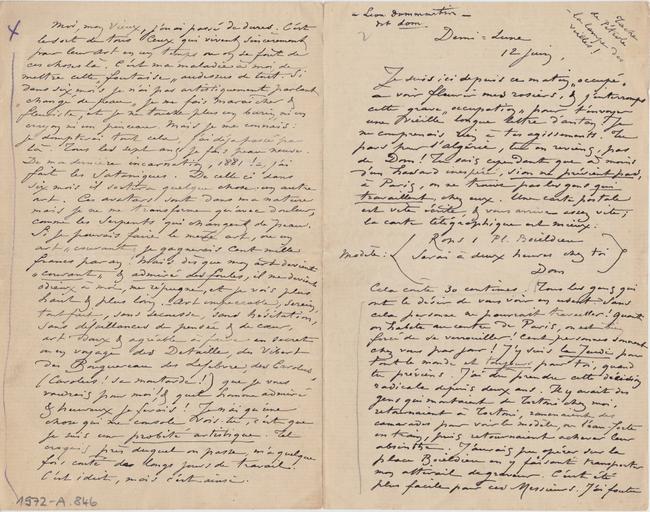 Moi, mon Vieux, j'en ai passé de dures. C'est
le sort de tous ceux qui vivent sincèrement
par leur art en un temps où on se fout de
ces choses là. C'est ma maladie à moi de
mettre cette fantaisie « au dessus de tout. Si
dans six mois je n'ai pas artistiquement parlant
« changé de peau » je me fais maraîcher &
fleuriste, et je ne touche plus un burin, ni un
crayon ni un pinceau. Mais je me connais :
je dompterai tout cela. J'ai déjà passé par
là. Tous les sept ans je fais peau neuve.
De ma dernière incarnation, 1881, j'ai
fait les Sataniques. De celle ci dans
six mois il sortira quelque chose, un autre
art. Ces avatars sont dans ma nature
mais je ne me transforme qu'avec douleur,
comme les serpents qui changent de peau.
Si je pouvais faire le même art, ou un
art « courant » je gagnerais cent mille
francs par an. Mais dès que mon art devient
« courant » & admiré des foules, il me devient
odieux à moi, me répugne, et je vois plus
haut & plus loin. Art impeccable, serein,
tout fait, sans secousse, sans hésitation,
sans défaillances de pensée & de cœur,
art doux & agréable à faire en secret
ou en voyage des Detaille, des Vibert
des Bouguereau des Lefebvre, des Carolus
(Carolus ! sa moutarde !) que je vous
voudrais pour moi ! & quel homme admiré
& heureux je ferais ! Je n'ai qu'une
chose qui me console vois-tu, c'est que
je suis une probité artistique. Tel
croquis près duquel on passe, m'a quelque
fois coûté des longs jours de travail.
C'est idiot, mais c'est ainsi.
1972-A.846
– Léon Dommartin –
dit Dom
Demi-Lune
12 juin
Je suis ici depuis ce matin, « occupé »
à voir fleurir mes rosiers, & j'interromps
cette grave « occupation » pour t'envoyer
une vieille longue lettre d'antan. Je
ne comprends rien à tes agissements. Je
pars pour l'Algérie, j'en reviens, pas
de Dom ! Tu sais cependant que à moins
d'un hasard inespéré, si on ne prévient pas,
à Paris, on ne trouve pas les gens qui
travaillent, chez eux. Une carte postale
est vite écrite, & vous arrive assez vite ;
la carte télégraphique est mieux.
Modèle :
Rops 1 Pl. Boieldieu
Serai à deux heures chez toi
Dom
Cela coûte 30 centimes. Tous les gens qui
ont le désir de vous voir en usent sans
cela personne ne pourrait travailler ! Quand
on habite au centre de Paris, on est bien
forcé de se verrouiller ! Cent personnes sonnent
chez vous par jour ! J'y suis le Jeudi pour
tout le monde et toujours pour toi, quand
tu préviens. J'ai dû prendre cette décision
radicale depuis deux ans. Il y avait des
gens qui montaient de Tortoni chez moi,
retournaient à Tortoni, ramenaient des
camarades pour voir le modèle, ou l'eau-forte
en train, puis retournaient achever leur
absinthe. J'aurais pu opérer sur la
place Boieldieu en y faisant transporter
mon attirail de graveur. C'eut été
plus facile pour ces Messieurs. J'ai foutu